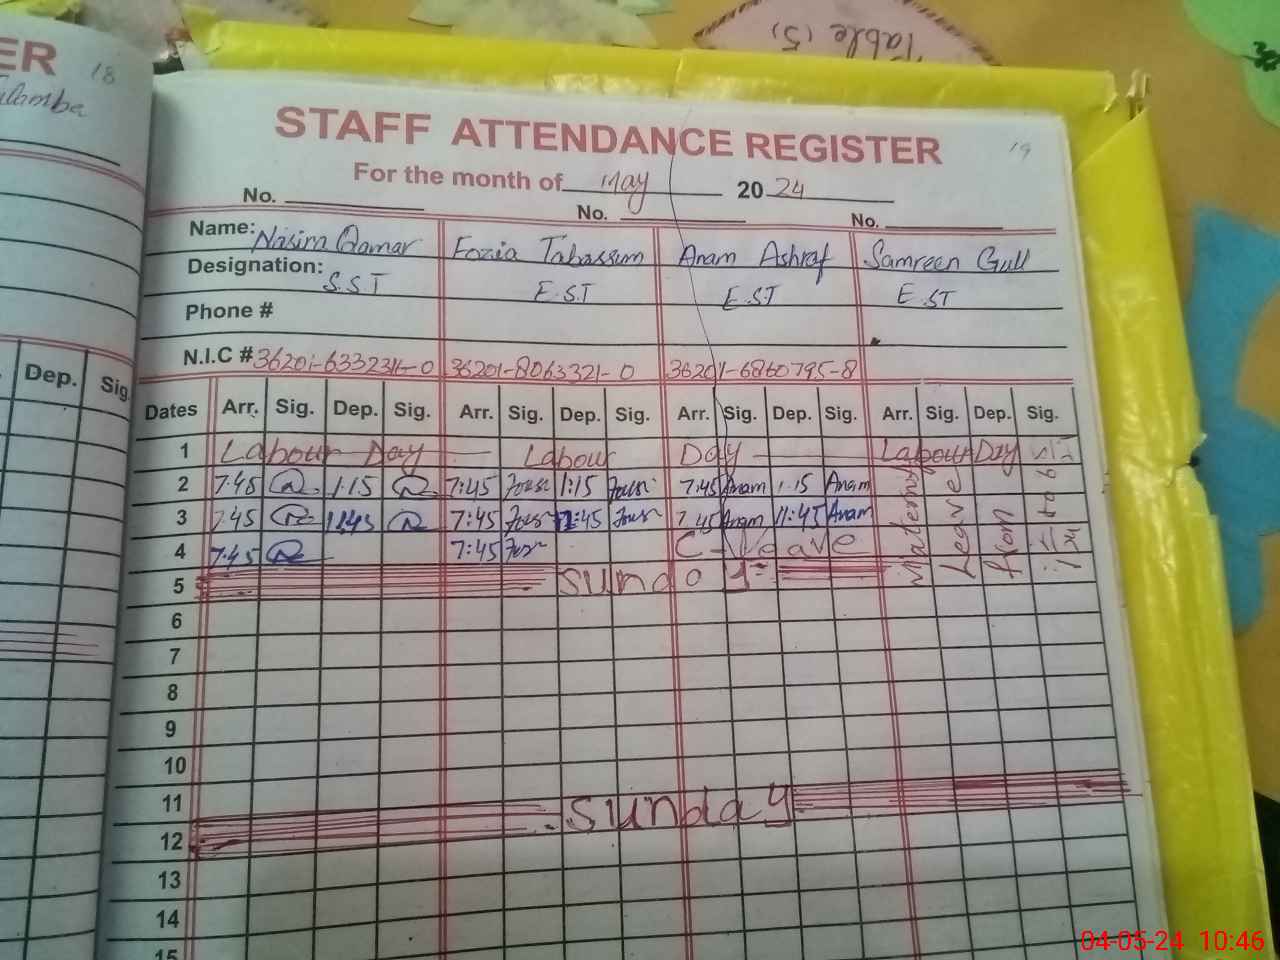 Table (5)
ER 18
STAFF ATTENDANCE REGISTER 19
For the month of May 2024
No. No. No.
Name: Nasim Qamar Fozia Tabassum Anam Ashraf Samreen Gull
Designation: S.S.T E.S.T E.S.T E.S.T
Phone #
N.I.C # 36201-6332316-0 36201-8063321-0 36201-6860795-8
Dep. Sig.
Dates Arr. Sig. Dep. Sig. Arr. Sig. Dep. Sig. Arr. Sig. Dep. Sig. Arr. Sig. Dep. Sig.
1 Labour Day Labour Day Labour Day
2 7:45 1:15 7:45 1:15 7:45 Anam 1:15 Anam
3 7:45 11:45 7:45 11:45 7:45 Anam 11:45 Anam
4 7:45 7:45 C-Leave
Maternity Leave from
5 Sunday
6
7
8
9
10
11 Sunday
12
13
14
15
04-05-24 10:46